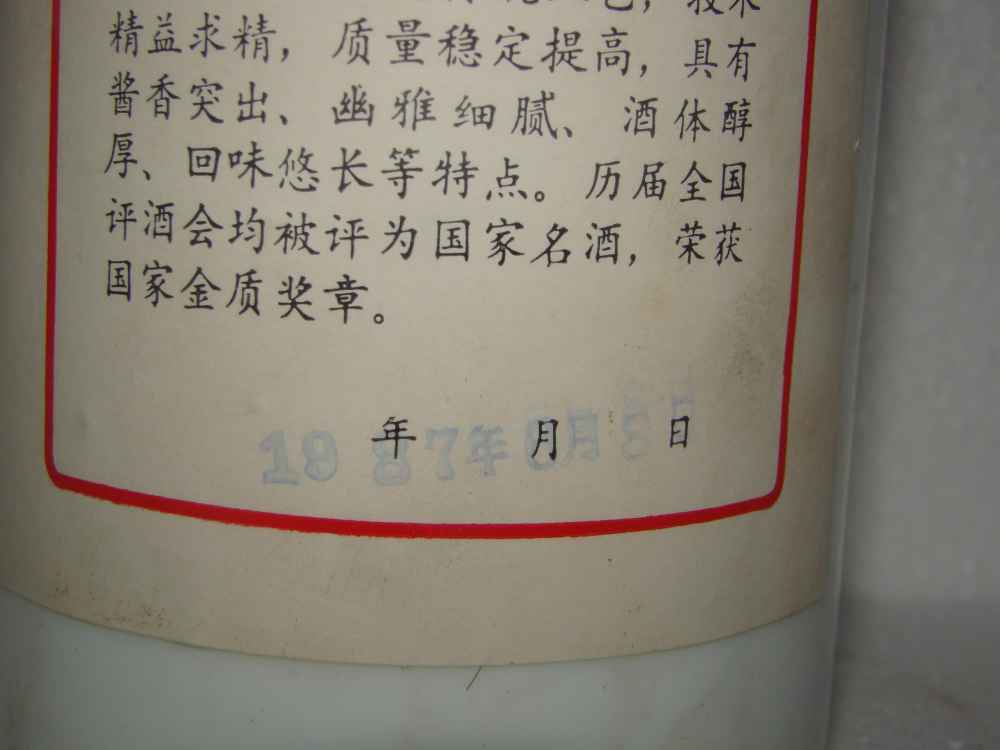 技术
精益求精，质量稳定提高，具有
酱香突出、幽雅细腻、酒体醇
厚、回味悠长等特点。历届全国
评酒会均被评为国家名酒，荣获
国家金质奖章。
年 月 日
1987年 月